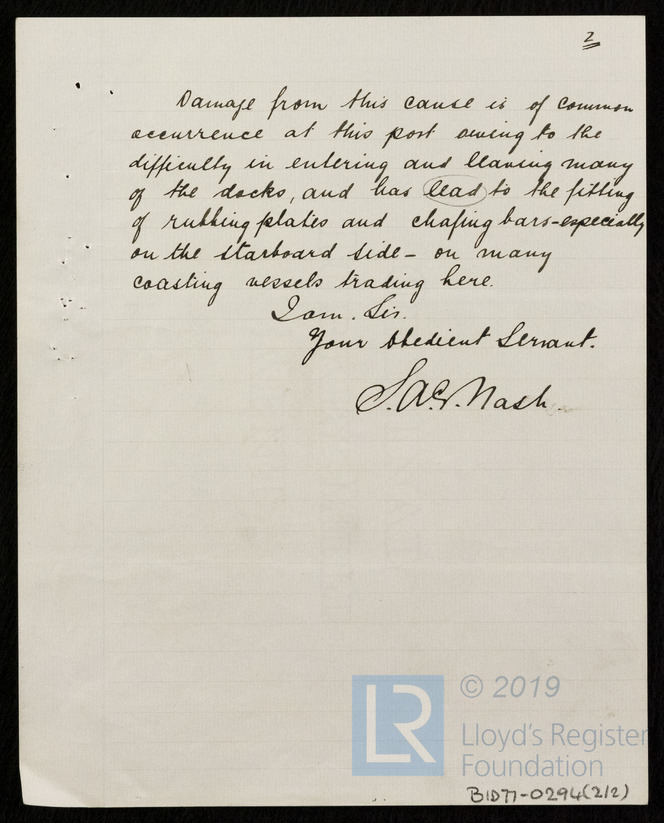 2
Damage from this cause is of common
occurrence at this port owing to the
difficulty in entering and leaving many
of the docks, and has lead to the fitting
of rubbing plates and chafing bars - especially
on the starboard side - on many
coasting vessels trading here.
I am. Sir.
Your Obedient Servant.
Nash.
LR
© 2019
Lloyd's Register
Foundation
B1D77-0294(2/2)